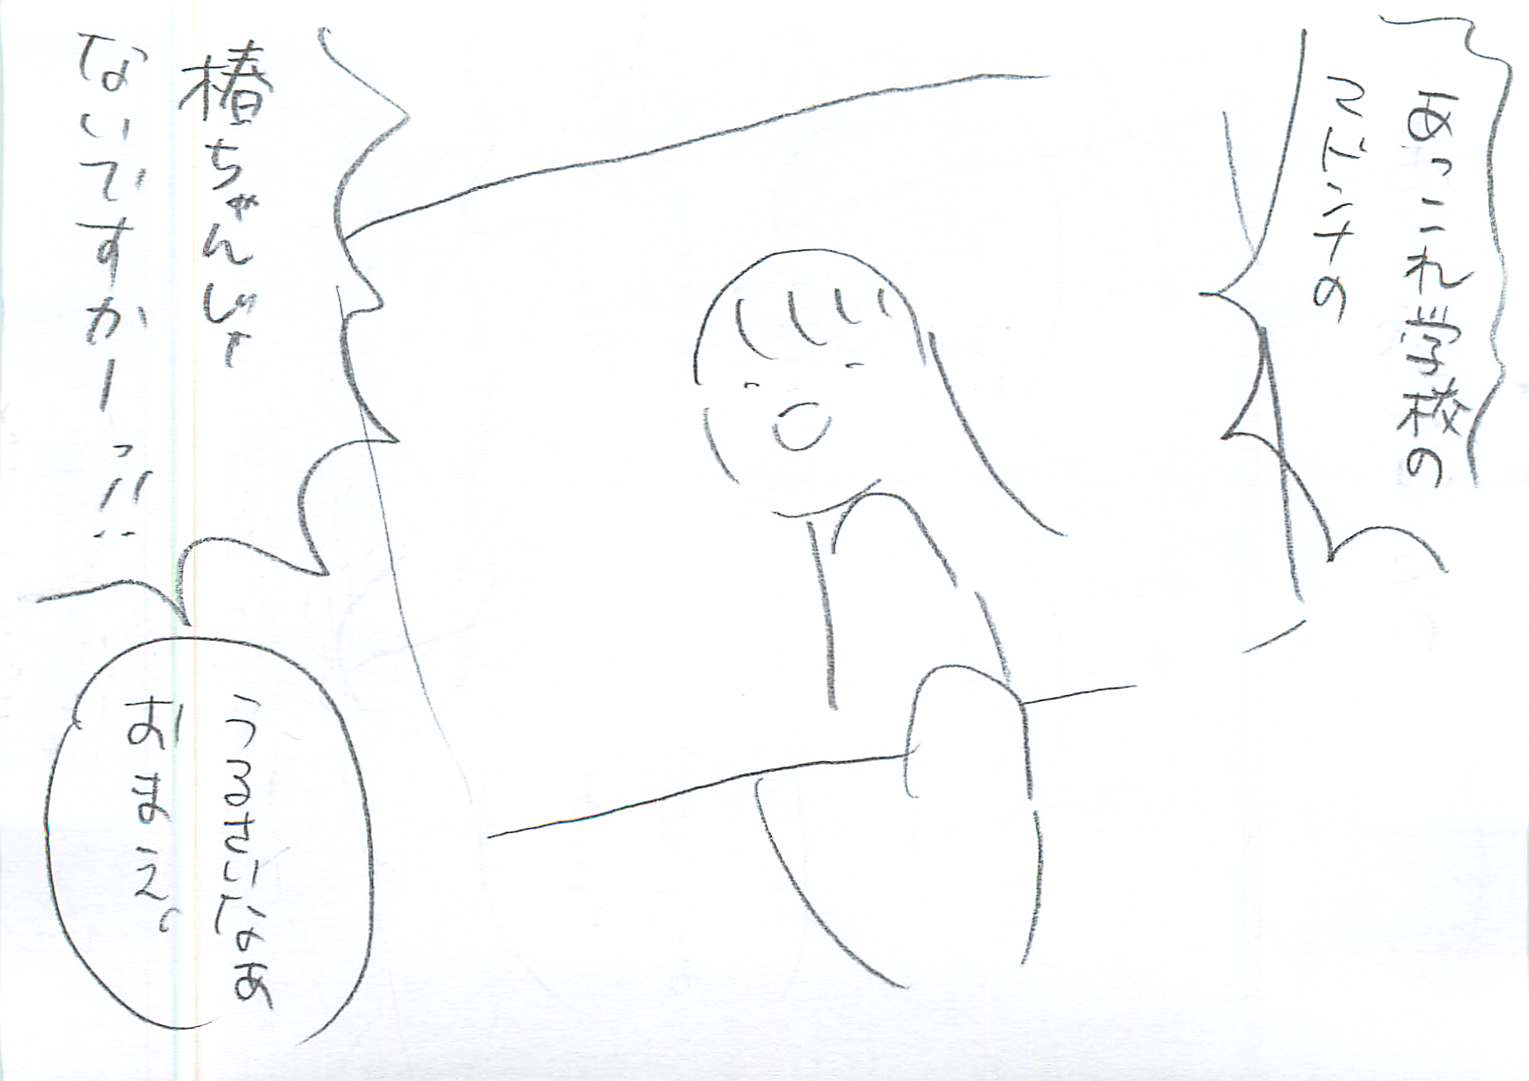 あっこれ学校の
マドンナの
椿ちゃんじゃ
ないですかー!!
うるさいなあ
おまえ。